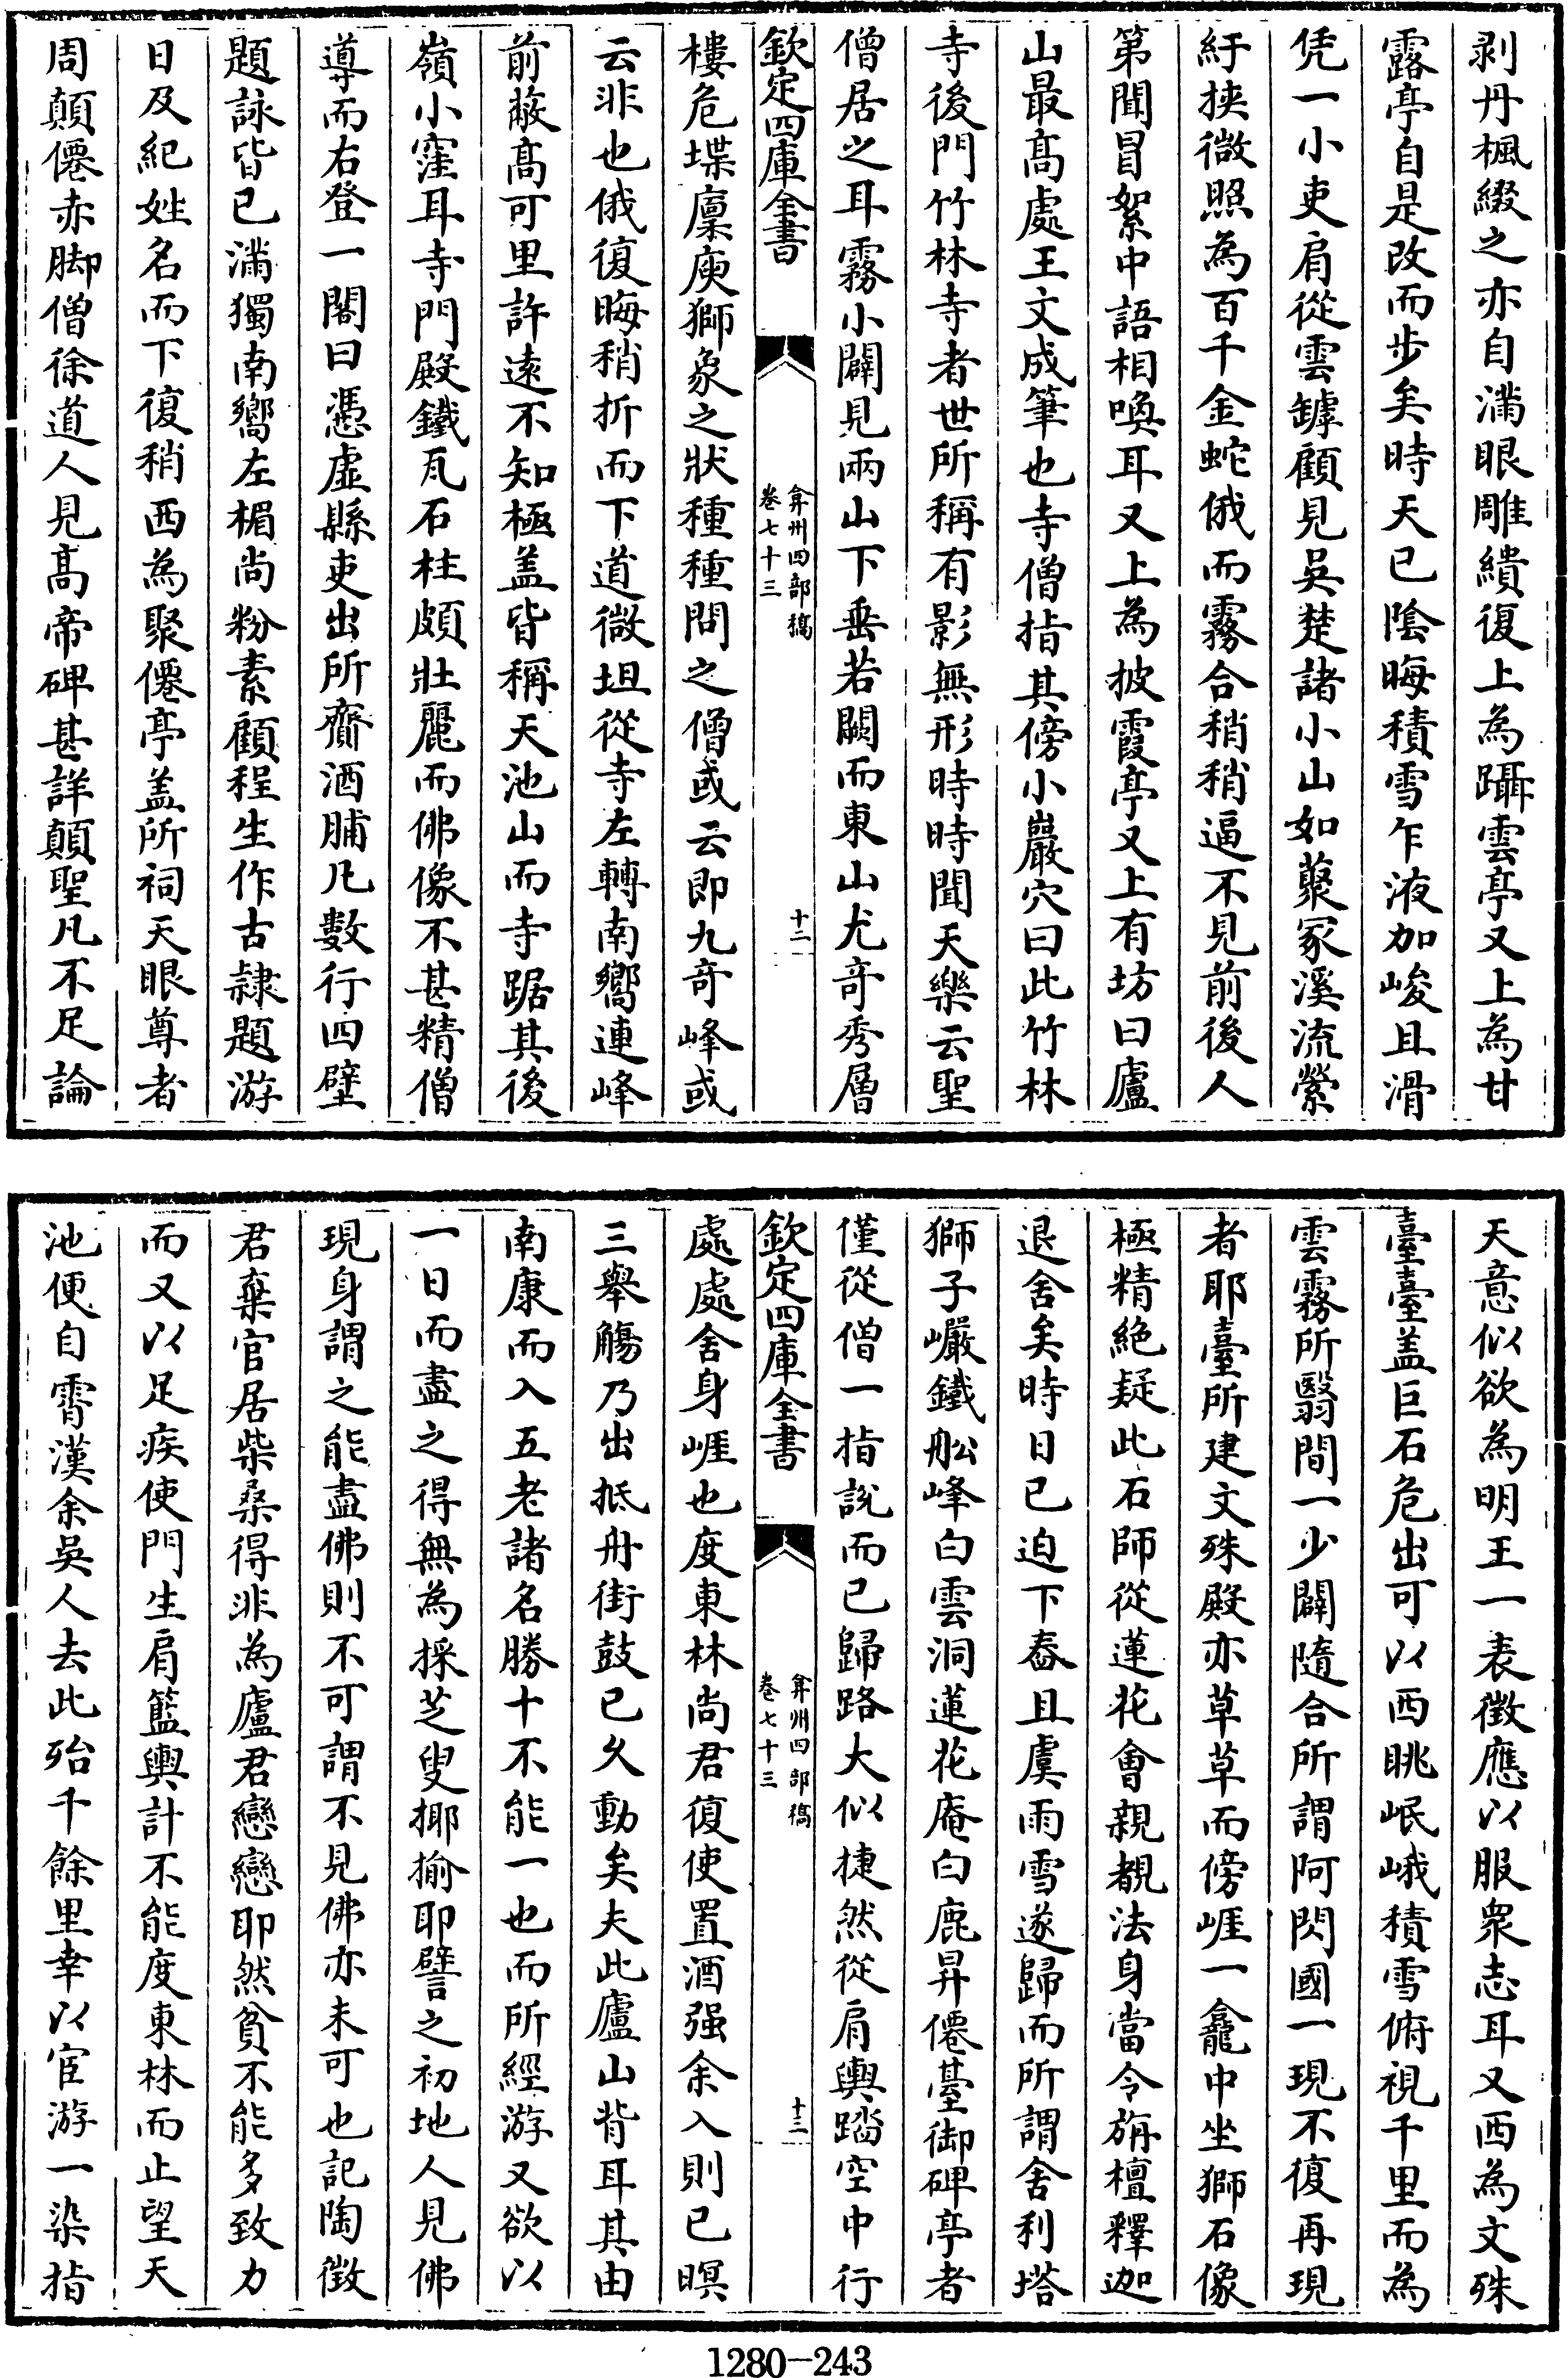 剥丹楓綴之亦自滿眼雕繢復上為躡雲亭又上為甘
露亭自是改而步矣時天已陰晦積雪乍液加峻且滑
凭一小吏肩從雲罅顧見吳楚諸小山如蕞冢溪流縈
紆挾微照為百千金蛇俄而霧合稍稍逼不見前後人
第聞冒絮中語相喚耳又上為披霞亭又上有坊曰廬
山最髙處王文成筆也寺僧指其傍小巖穴曰此竹林
寺後門竹林寺者世所稱有影無形時時聞天樂云聖
僧居之耳霧小闢見兩山下垂若闕而東山尤奇秀層
欽定四庫全書
弇州四部稿
卷七十三
十二
樓危堞廪庾獅象之狀種種問之僧或云即九奇峰或
云非也俄復晦稍折而下道微坦從寺左轉南嚮連峰
前蔽髙可里許遠不知極盖皆稱天池山而寺踞其後
嶺小窪耳寺門殿鐵瓦石柱頗壯麗而佛像不甚精僧
導而右登一閣曰憑虛縣吏出所齎酒脯凡數行四壁
題詠皆已滿獨南嚮左楣尚粉素顧程生作古隷題游
日及紀姓名而下復稍西為聚僊亭盖所祠天眼尊者
周顛僊赤脚僧徐道人見髙帝碑甚詳顛聖凡不足論
天意似欲為明王一表徵應以服衆志耳又西為文殊
臺臺盖巨石危出可以西眺岷峨積雪俯視千里而為
雲霧所翳間一少闢隨合所謂阿閦國一現不復再現
者耶臺所建文殊殿亦草草而傍崕一龕中坐獅石像
極精絶疑此石師從蓮花會親覩法身當令旃檀釋迦
退舍矣時日已迫下舂且虞雨雪遂歸而所謂舍利塔
獅子巗鐵船峰白雲洞蓮花庵白鹿昇僊臺御碑亭者
僅從僧一指說而已歸路大似捷然從肩輿踏空中行
欽定四庫全書
弇州四部稿
卷七十三
十三
處處舍身崕也度東林尚君復使置酒强余入則已暝
三舉觴乃出抵舟街鼓已久動矣夫此廬山背耳其由
南康而入五老諸名勝十不能一也而所經游又欲以
一日而盡之得無為採芝叟揶揄耶譬之初地人見佛
現身謂之能盡佛則不可謂不見佛亦未可也記陶徵
君棄官居柴桑得非為廬君戀戀耶然貧不能多致力
而又以足疾使門生肩籃輿計不能度東林而止望天
池便自霄漢余吳人去此殆千餘里幸以宦游一染指
1280-243